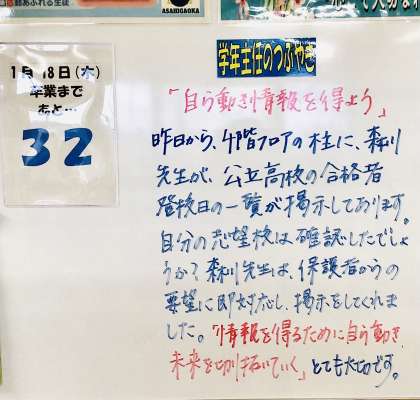 動あふれる生徒
ASAHIGAOKA
学年主任のつぶやき
1月18日(木)
卒業まで
あと…
32
「自ら動き情報を得よう」
昨日から、4階フロアの柱に、森川
先生が、公立高校の合格者
登校日の一覧が掲示してあります。
自分の志望校は確認したでしょ
うか?森川先生は、保護者からの
要望に即対応し、掲示をしてくれま
した。"情報を得るために自ら動き
未来を切り拓いていく"とても大切です。